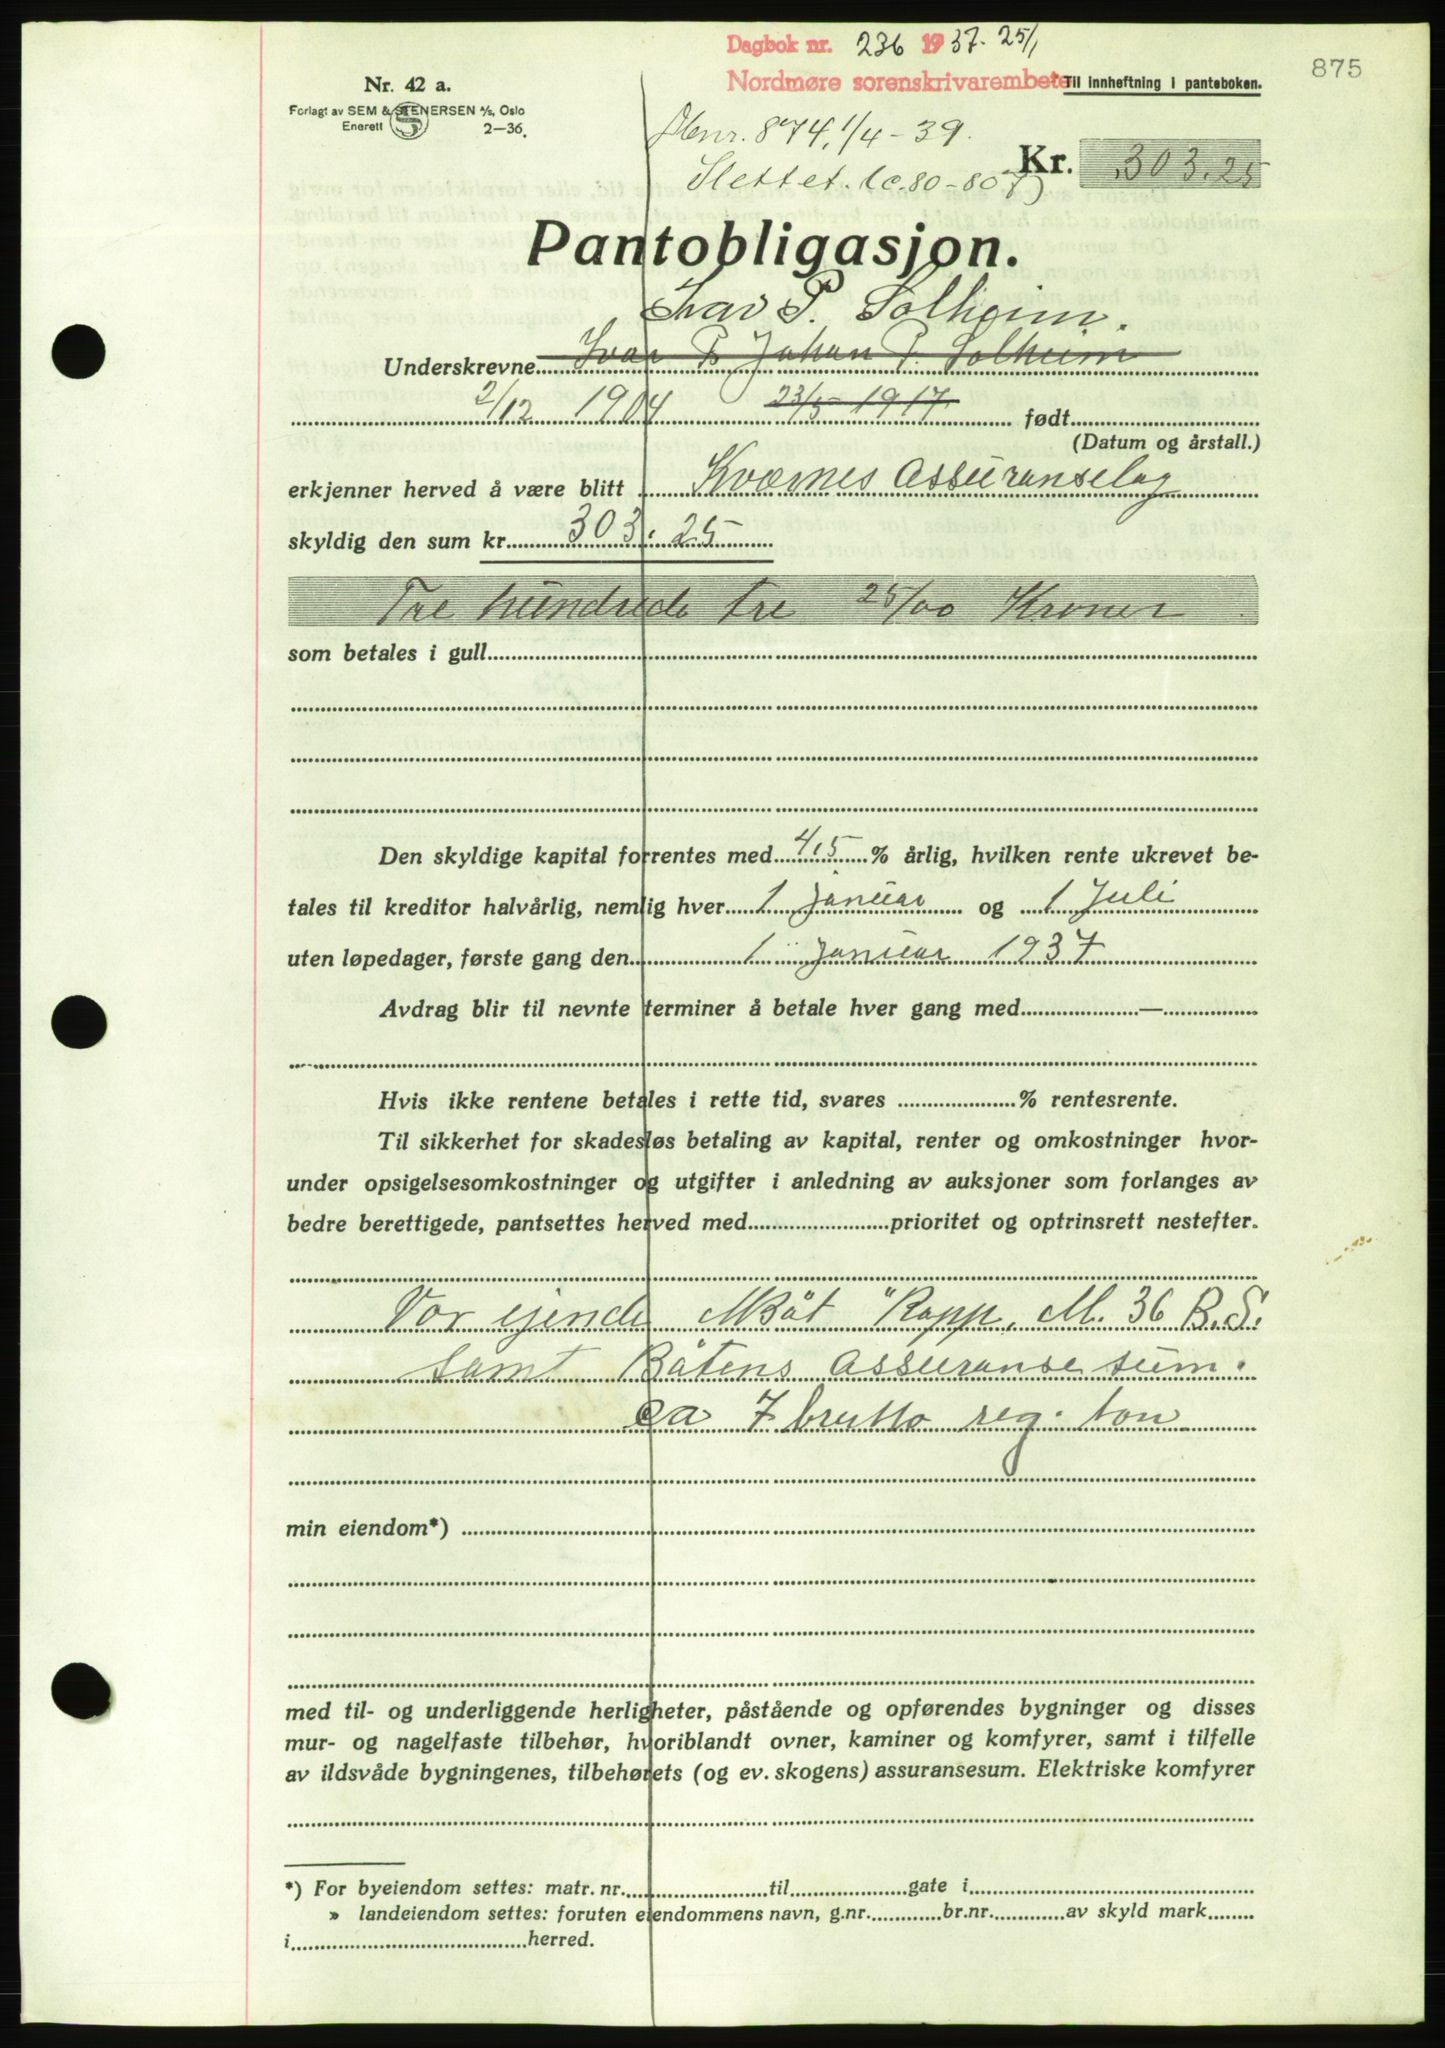 Dagbok nr. 236 1937. 25/1
875
Nordmøre sorenskrivarembete
Til innheftning i panteboken.
Nr. 42 a.
Forlagt av SEM & STENERSEN A/S, Oslo
Enerett 2—36.
nr. 874, 1/4 - 39.
Slettet. l c. 80-807)
Kr. 303.25
Pantobligasjon.
Ivar P. Solheim.
Underskrevne Ivar P. Johan P. Solheim
2/12 1904 23/5 1917 født
(Datum og årstall.)
erkjenner herved å være blitt Kværnes Assuranselag
skyldig den sum kr. 303.25
Tre hundrede tre 25/00 Kroner
som betales i gull
Den skyldige kapital forrentes med 4.5 % årlig, hvilken rente ukrevet be-
tales til kreditor halvårlig, nemlig hver 1 Januar og 1 Juli
uten løpedager, første gang den 1 Januar 1937
Avdrag blir til nevnte terminer å betale hver gang med —
Hvis ikke rentene betales i rette tid, svares % rentesrente.
Til sikkerhet for skadesløs betaling av kapital, renter og omkostninger hvor-
under opsigelsesomkostninger og utgifter i anledning av auksjoner som forlanges av
bedre berettigede, pantsettes herved med prioritet og optrinsrett nestefter
Vor ejende MBåt "Rapp. M. 36 B.S.
samt Båtens Assuransesum.
ca 7 brutto reg. ton
min eiendom*)
med til- og underliggende herligheter, påstående og opførendes bygninger og disses
mur- og nagelfaste tilbehør, hvoriblandt ovner, kaminer og komfyrer, samt i tilfelle
av ildsvåde bygningenes, tilbehørets (og ev. skogens) assuransesum. Elektriske komfyrer
*) For byeiendom settes: matr. nr. til gate i
» landeiendom settes: foruten eiendommens navn, g.nr. br.nr. av skyld mark
i herred.